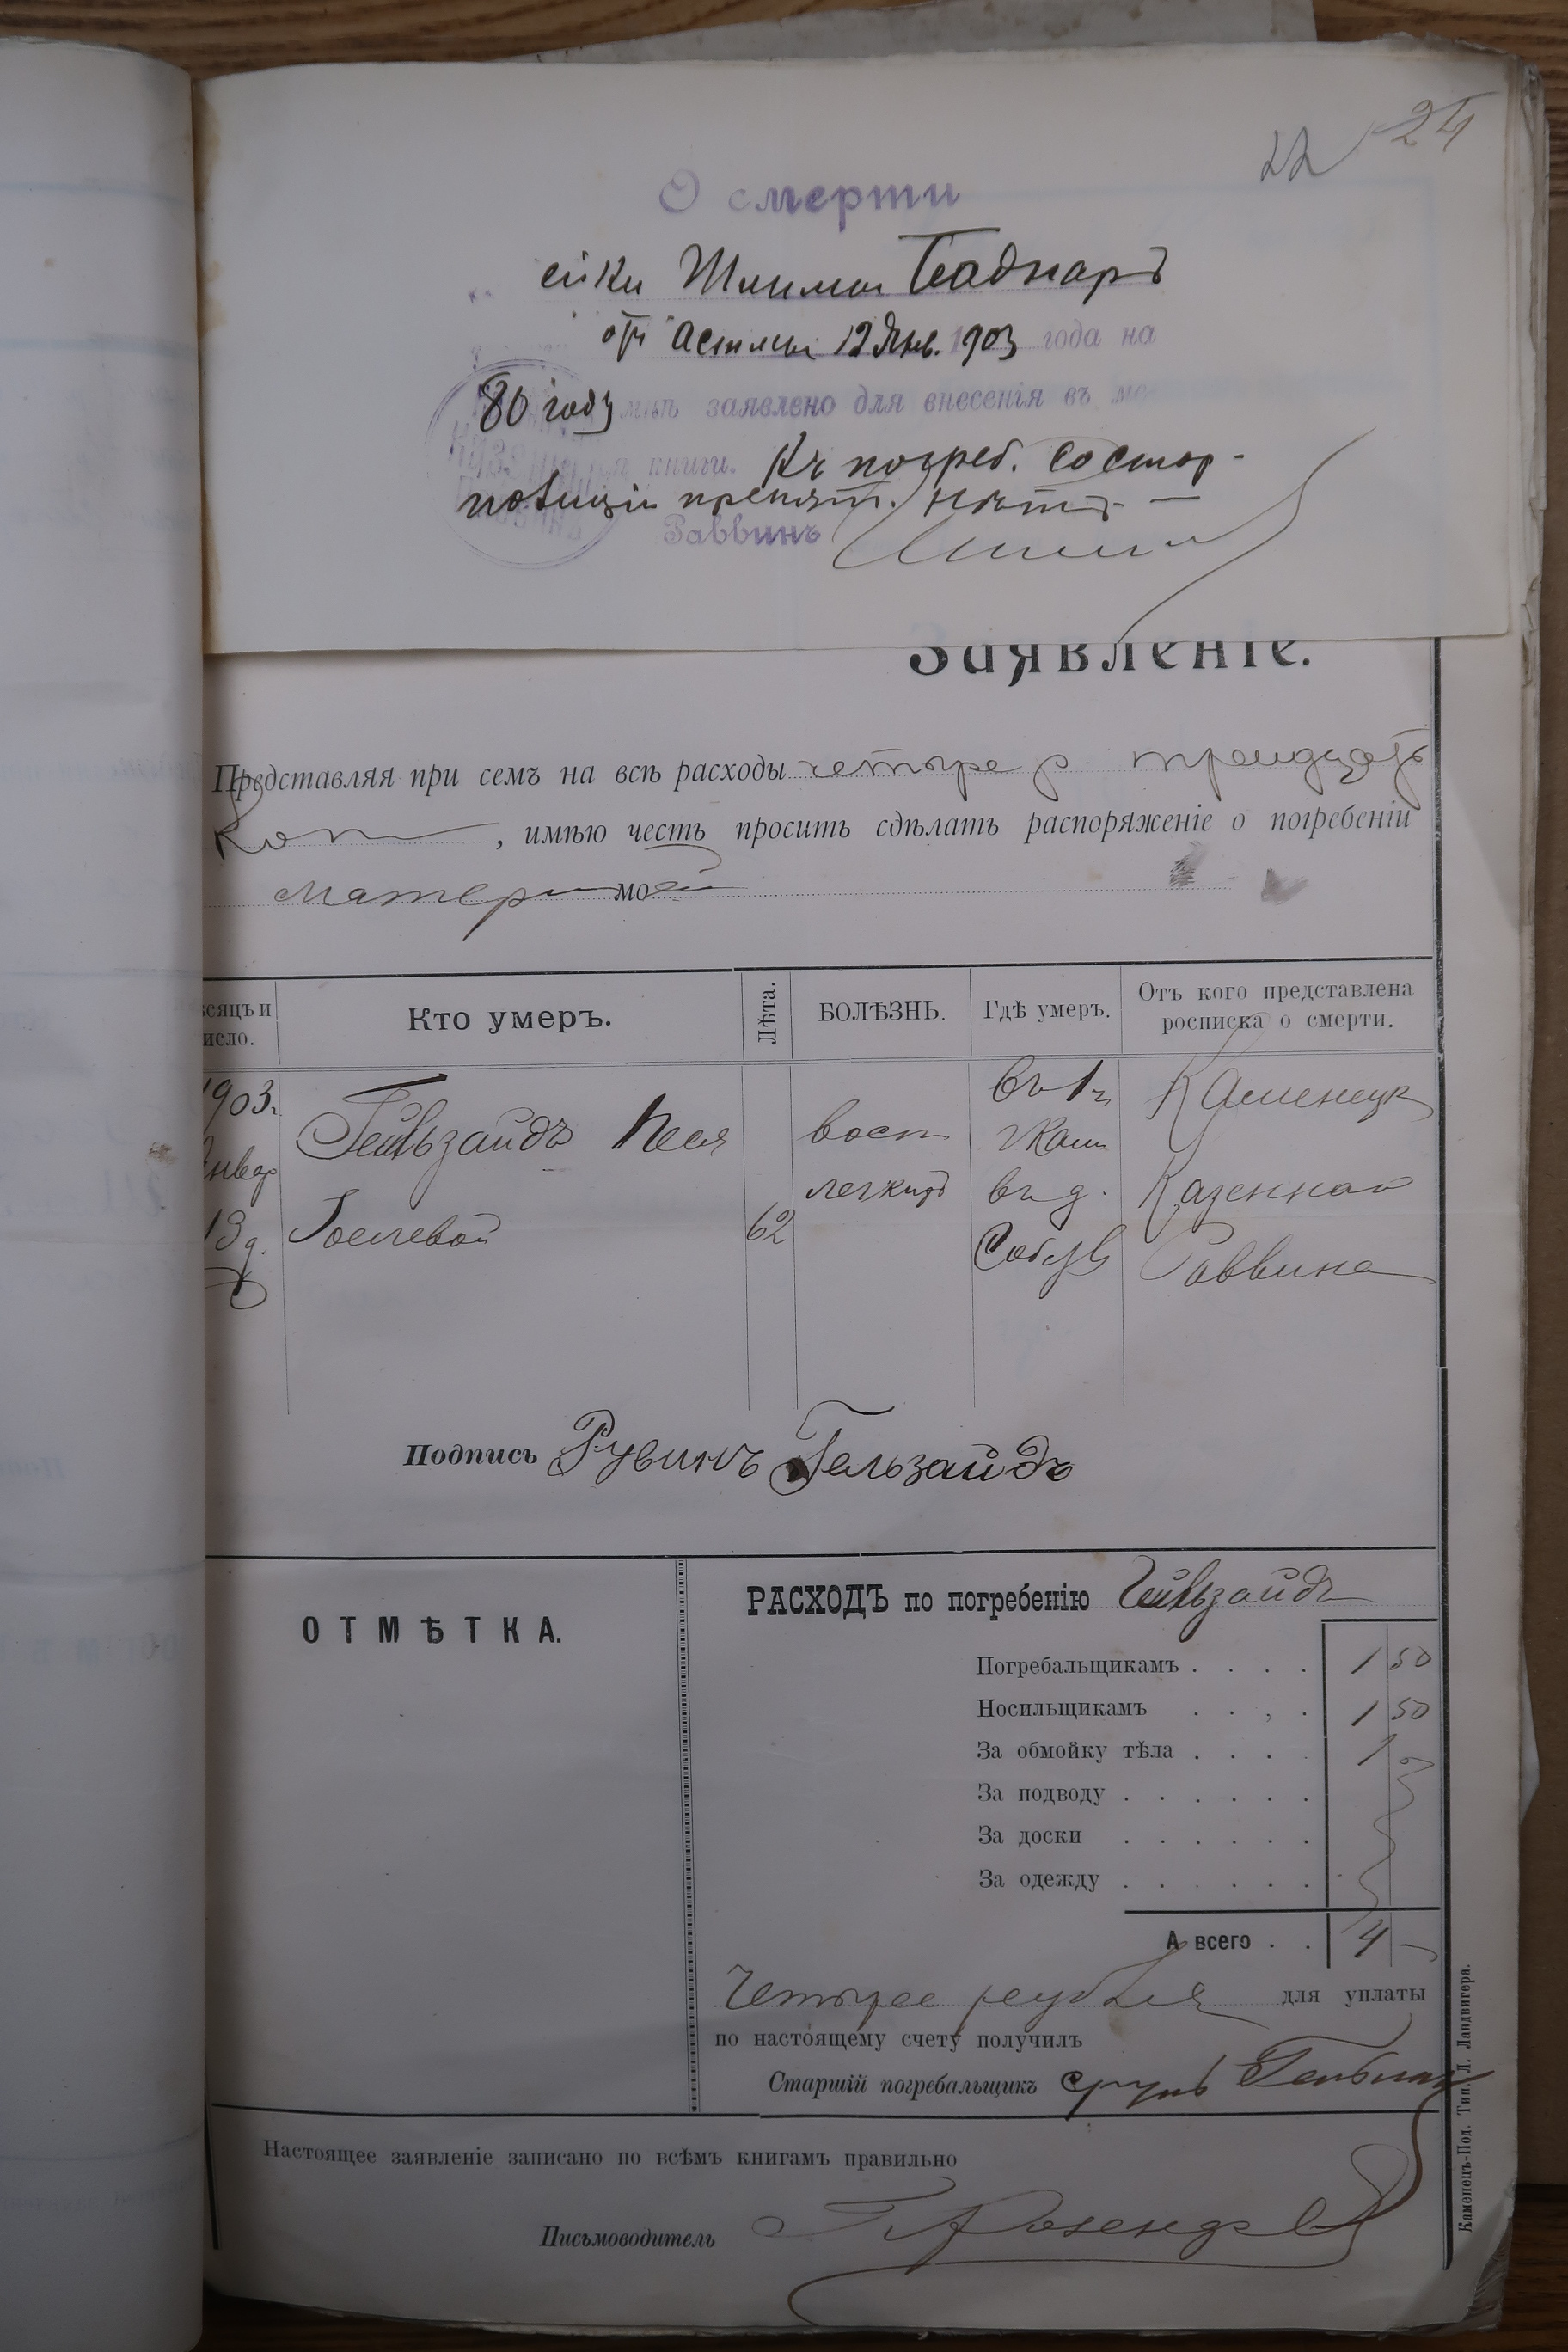 22 24
О смерти
ейки Шлимы Баднаръ
отъ Астмы 12 Янв. 1903 года на
80 году мнѣ заявлено для внесенія въ ме
книги. Къ погреб. со стор-
полиціи препят. нѣтъ —
Раввинъ
Заявленіе.
Представляя при семъ на всѣ расходы четыре р. тридцать
коп , имѣю честь просить сдѣлать распоряженіе о погребеніи
матери моей
сяцъ и
исло.
Кто умеръ.
Лѣта.
БОЛѢЗНЬ.
Гдѣ умеръ.
Отъ кого представлена
росписка о смерти.
1903г.
Январ
13 д.
Гейльзайдъ Песя
62
восп
легкихъ
въ г.
въ д.
Каменецк
Казеннаго
Раввина
Подпись Рувинъ Гельзайдъ
ОТМѢТКА.
РАСХОДЪ по погребенію Гейльзайдъ
Погребальщикамъ . . . . 1 50
Носильщикамъ . . , . 1 50
За обмойку тѣла . . . . 1
За подводу . . . . . .
За доски . . . . . .
За одежду . . . . . .
А всего . . 4 —
Четыре рубля для уплаты
по настоящему счету получилъ
Старшій погребальщикъ
Настоящее заявленіе записано по всѣмъ книгамъ правильно
Письмоводитель
Каменецъ-Под. Тип. Л. Ландвигера.